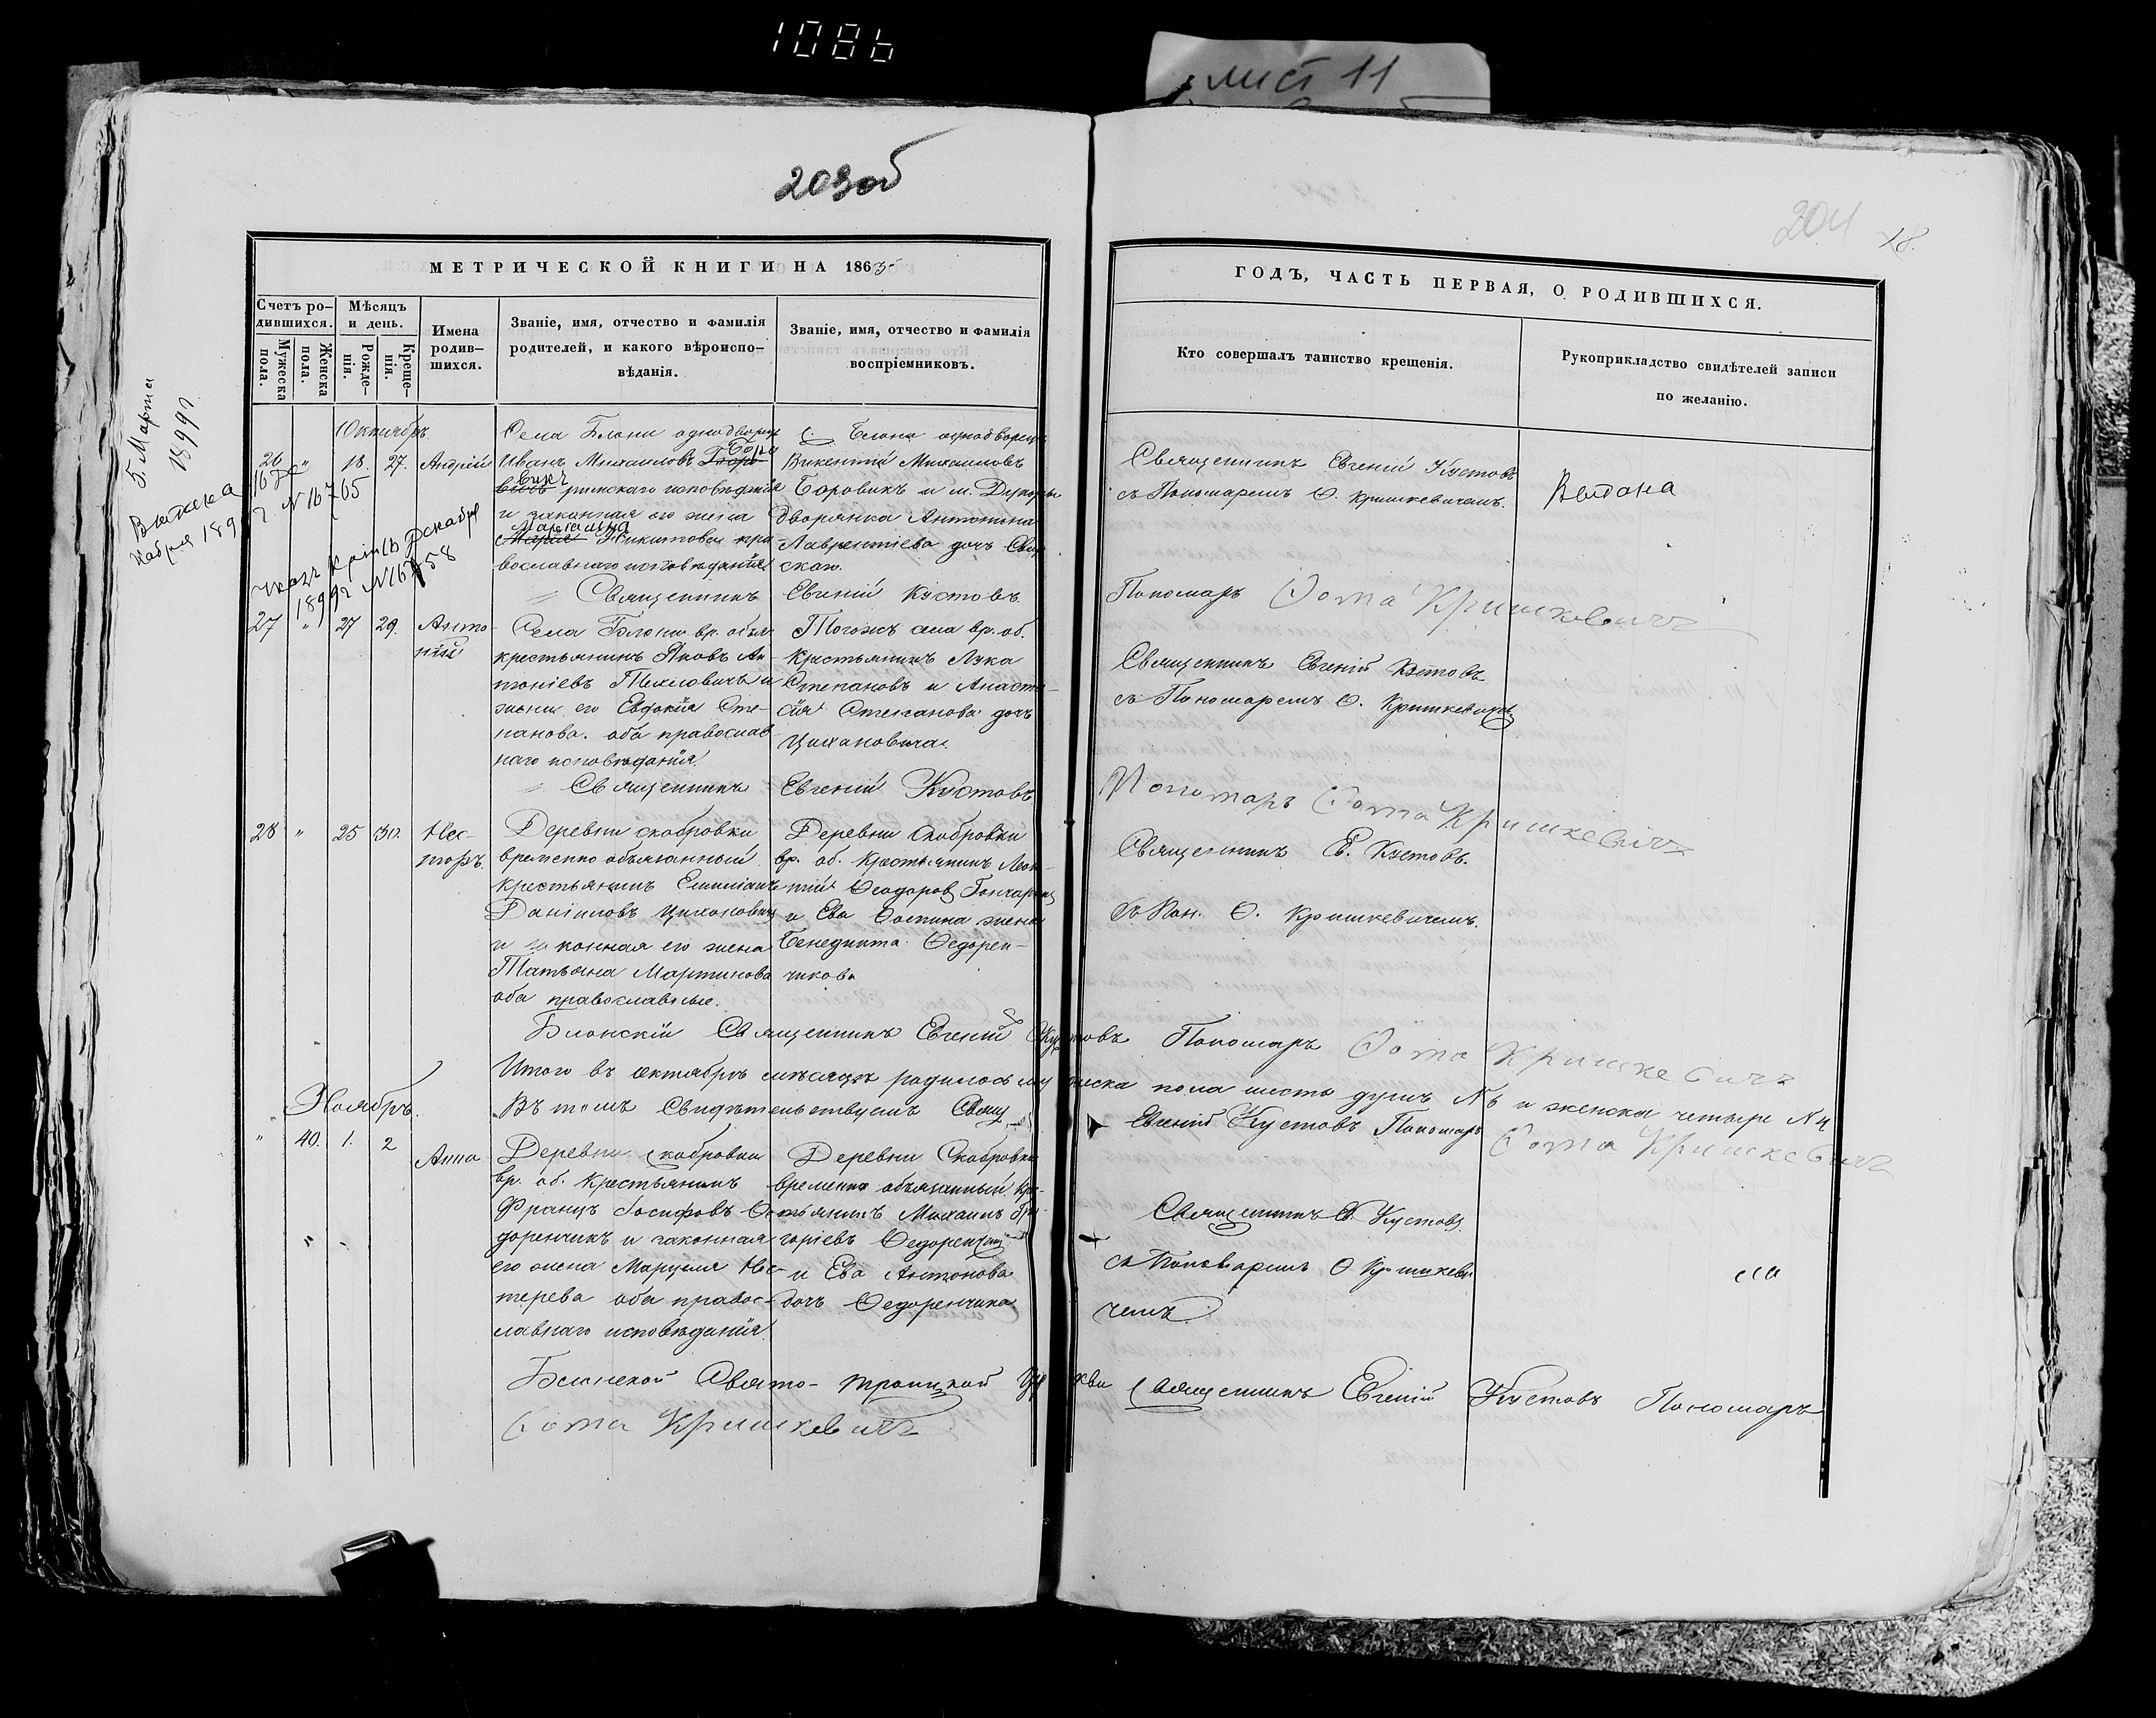 1086
лист 11
203об
204
МЕТРИЧЕСКОЙ КНИГИ НА 1865
ГОДЪ, ЧАСТЬ ПЕРВАЯ, О РОДИВШИХСЯ.
Счетъ родившихся.
Мужеска пола.
Женска пола.
Мѣсяцъ и день.
Рожденія.
Крещенія.
Имена родив-
шихся.
Званіе, имя, отчество и фамилія
родителей, и какого вѣроиспо-
вѣданія.
Званіе, имя, отчество и фамилія
воспріемниковъ.
Кто совершалъ таинство крещенія.
Рукоприкладство свидѣтелей записи
по желанію.
5 Марта
1899
№ 16765
Указъ
Декабря
1899 № 16758
Октябрь
26 " 18. 27. Андрей
Села Блони однодворецъ
Иванъ Михаиловъ Боро
викъ римскаго исповѣданія
и законная его жена
Никитова пра
вославнаго исповѣданія
С. Блони однодворецъ
Викентій Михаиловъ
Боровикъ и м. Дукоры
дворянка Антонина
Лаврентіева дочь
Священникъ Евгеній Кустовъ
съ Пономаремъ Ѳ. Кришкевичемъ.
Священникъ Евгеній Кустовъ
Пономарь Ѳома Кришкевичъ
27 " 27 29. Анто
ній
Села Блони вр. обяз.
крестьянинъ Яковъ Ан
тоніевъ и
жена его Евдокія Сте-
панова. оба православ
наго исповѣданія.
Тогожъ села вр. об.
крестьянинъ Лука
Степановъ и Анаста-
сія Степанова дочь
Цихановича.
Священникъ Евгеній Кустовъ
съ Пономаремъ Ѳ. Кришкевичемъ
Священникъ Евгеній Кустовъ
Пономарь Ѳома Кришкевичъ
28 " 25 30. Нес-
торъ.
Деревни Скобровки
временно обязанный
крестьянинъ Емиліанъ
Даніиловъ Цихоновичъ
и законная его жена
Татьяна Мартинова
оба православные.
Деревни Скобровки
вр. об. крестьянинъ Леон-
тій Ѳеодоровъ Гончарикъ
и Ева Ѳомина жена
Бенедикта Ѳедорен-
чикова
Священникъ Е. Кустовъ.
съ Пон. Ѳ. Кришкевичемъ.
Блонскій Священникъ Евгеній Кустовъ Пономарь Ѳома Кришкевичъ
Итого въ октябрѣ мѣсяцѣ родилось мужеска пола шесть душъ № 6 и женска четыре № 4
Въ томъ свидѣтельствуемъ Свящ. Евгеній Кустовъ Пономарь Ѳома Кришкевичъ
Ноябрь.
" 40. 1. 2 Анна
Деревни Скобровки
вр. об. крестьянинъ
Францъ Іосифовъ Ѳе
доренчикъ и законная
его жена Марцеля Нес-
терева оба правос-
лавнаго исповѣданія.
Деревни Скобровки
временно обязанный кре-
стьянинъ Михаилъ Гри-
горіевъ Ѳедоренчикъ
и Ева Антонова
дочь Ѳедоренчика
Священникъ Е. Кустовъ
съ Пономаремъ Ѳ Кришкеви
чемъ
Блонской Свято-Троицкой Церкви Священникъ Евгеній Кустовъ Пономарь
Ѳома Кришкевичъ